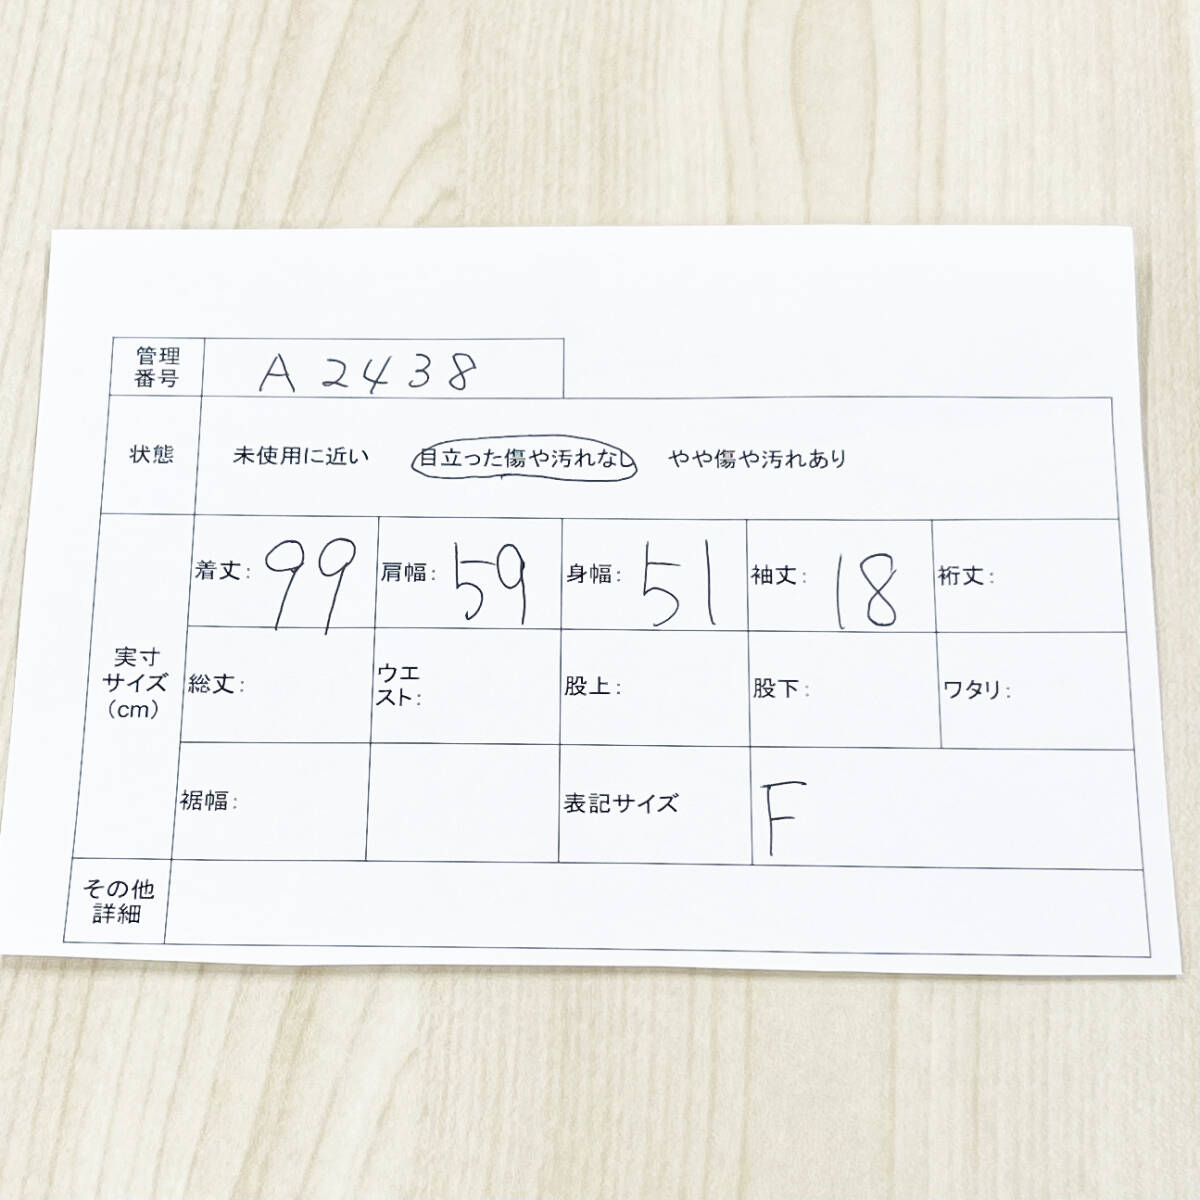 管理
番号
A2438
状態
未使用に近い 目立った傷や汚れなし やや傷や汚れあり
実寸
サイズ
（cm）
着丈: 99 肩幅: 59 身幅: 51 袖丈: 18 裄丈:
総丈: ウエ
スト: 股上: 股下: ワタリ:
裾幅: 表記サイズ F
その他
詳細